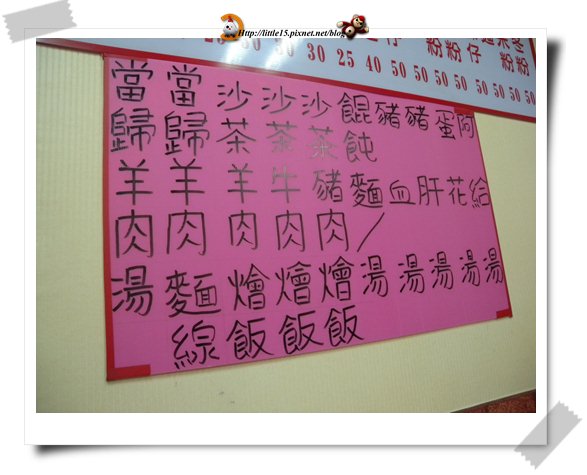 Http://little15.pixnet.net/blog
當歸羊肉湯
當歸羊肉麵線
沙茶羊肉燴飯
沙茶牛肉燴飯
沙茶豬肉燴飯
餛飩麵/湯
豬血湯
豬肝湯
蛋花湯
阿給湯
仔 粉 粉 仔 粉 粉
25 30 50 30 25 40 50 50 50 50 50 50 50 50